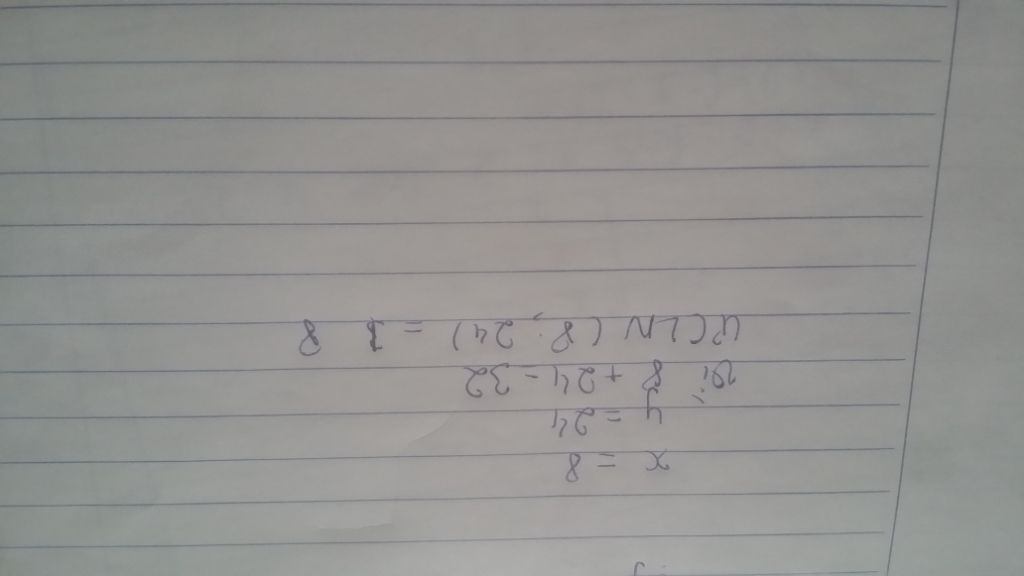 x = 8
y = 24
Vì 8 + 24 = 32
ƯCLN (8; 24) = 8